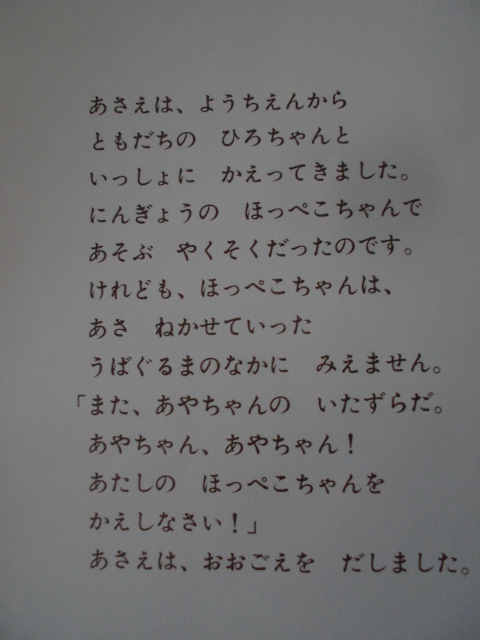 あさえは、ようちえんから
ともだちの　ひろちゃんと
いっしょに　かえってきました。
にんぎょうの　ほっぺこちゃんで
あそぶ　やくそくだったのです。
けれども、ほっぺこちゃんは、
あさ　ねかせていった
うばぐるまのなかに　みえません。
「また、あやちゃんの　いたずらだ。
あやちゃん、あやちゃん！
あたしの　ほっぺこちゃんを
かえしなさい！」
あさえは、おおごえを　だしました。